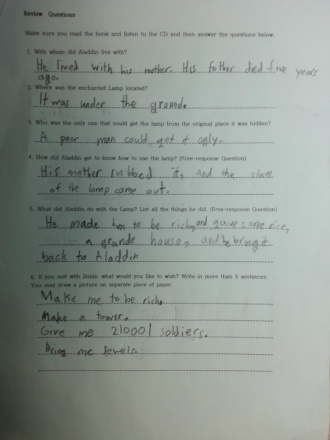 Review Questions
Make sure you read the book and listen to the CD and then answer the questions below.
1. With whom did Aladdin live with?
He lived with his mother. His father died five years
ago.
2. Where was the enchanted Lamp located?
It was under the ground.
3. Who was the only one that could get the lamp from the original place it was hidden?
A poor man could get it only.
4. How did Aladdin get to know how to use the lamp? (Free-response Question)
His mother rubbed it, and the slave
of the lamp came out.
5. What did Aladdin do with the Lamp? List all the things he did. (Free-response Question)
He made him to be rich, and gave some rice,
a grande house, and he bring it
back to Aladdin
6. If you met with Genie, what would you like to wish? Write in more than 5 sentences.
You may draw a picture on separate piece of paper.
Make me to be rich.
Make a tower.
Give me 210001 soldiers.
Bring me Jewels.